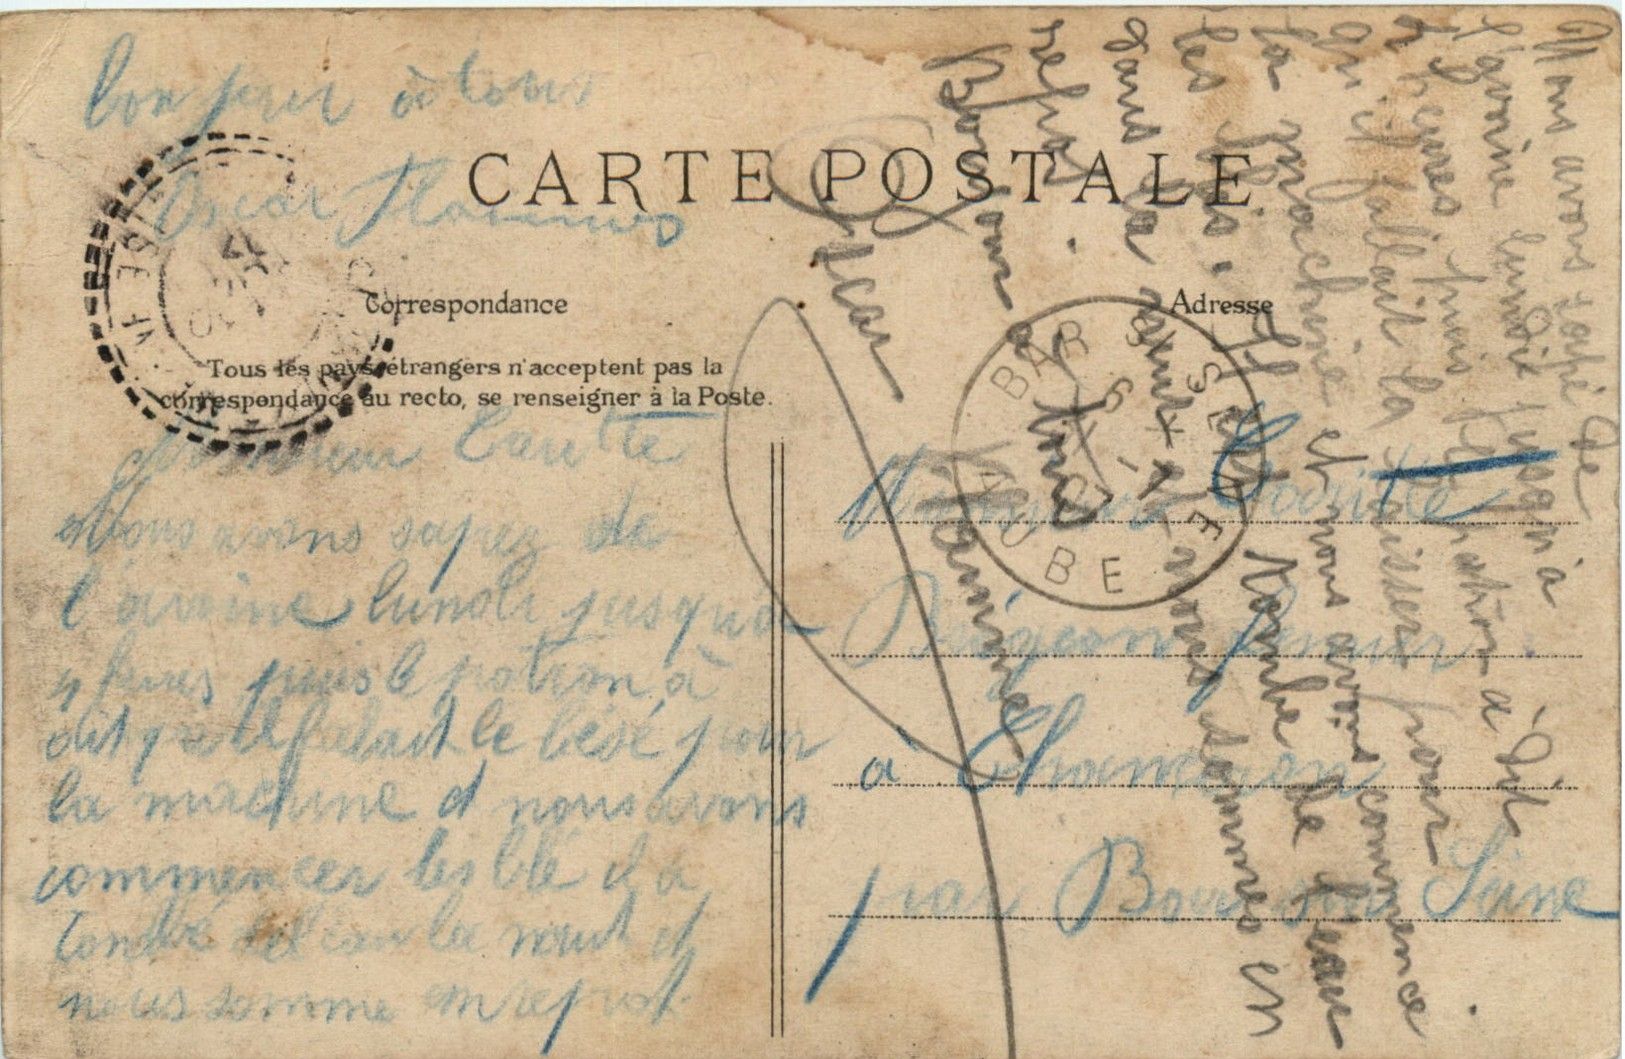 bonjour à tous
Oscar
CARTE POSTALE
Correspondance
Adresse
Tous les pays étrangers n'acceptent pas la
correspondance au recto, se renseigner à la Poste.
Monsieur Coutte
Nous avons sapez de
l'avoine lundi jusqua
4 heures puis le patron à
dit qu'il falait le bésé pour
la machine et nous avons
commencer les blé il a
tombé del eau la nuit et
nous somme en repot.
Monsieur Coutte
à
par Bar sur Seine
BAR S SEINE
AUBE
Nous avons sapé de
l'avoine lundi jusqu'à
heures puis le patron a dit
qu'il fallait la laisser pour
la machine et nous avons commencé
les blés. Il est tombé de l'eau
dans la nuit et nous sommes en
repos.
Bonjour à tous
Oscar